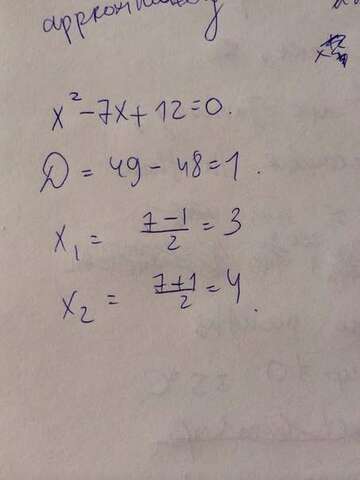 x² - 7x + 12 = 0.
D = 49 - 48 = 1.
x₁ = (7 - 1)/2 = 3
x₂ = (7 + 1)/2 = 4.